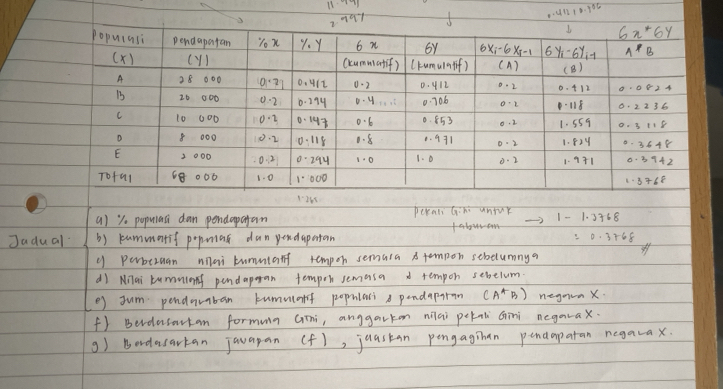 2 997
0.412 + 0.706
6x * 6y
Populasi pendapatan % x % Y 6x 6Y 6Xi-6Xi-1 6Yi-6Yi-1 A*B
(X) (Y) (kumulatif) (kumulatif) (A) (B)
A 28 000 0.2 0.412 0.2 0.412 0.2 0.412 0.0824
B 20 000 0.2 0.294 0.4 0.706 0.2 1.118 0.2236
C 10 000 0.2 0.147 0.6 0.853 0.2 1.559 0.3118
D 8 000 0.2 0.118 0.8 0.971 0.2 1.824 0.3648
E 2 000 0.2 0.294 1.0 1.0 0.2 1.971 0.3942
Total 68 000 1.0 1.000 1.3768
Jadual
a) % populasi dan pendapatan
Pekali Gini untuk → 1 - 1.3768
= 0.3768
b) kumulatif populasi dan pendapatan
c) Perbezaan nilai kumulatif tempoh semasa & tempoh sebelumnya
d) Nilai kumulatif pendapatan tempoh semasa & tempoh sebelum.
e) Jum pendaraban kumulatif populasi & pendapatan (A*B) negara X.
f) Berdasarkan formula Gini, anggarkan nilai pekali Gini negara X.
g) Berdasarkan jawapan (f), jelaskan pengagihan pendapatan negara X.